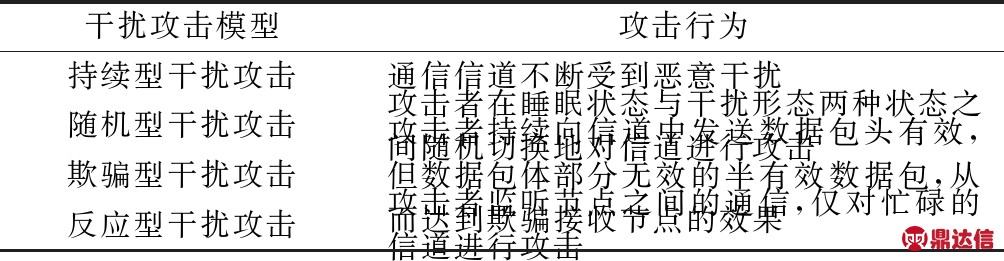 干扰攻击模型 攻击行为
持续型干扰攻击 通信信道不断受到恶意干扰
随机型干扰攻击 攻击者在睡眠状态与干扰形态两种状态之
间随机切换地对信道进行攻击
欺骗型干扰攻击 攻击者持续向信道中发送数据包头有效，
但数据包体部分无效的半有效数据包,从
而达到欺骗接收节点的效果
反应型干扰攻击 攻击者监听节点之间的通信,仅对忙碌的
信道进行攻击
鼎达信